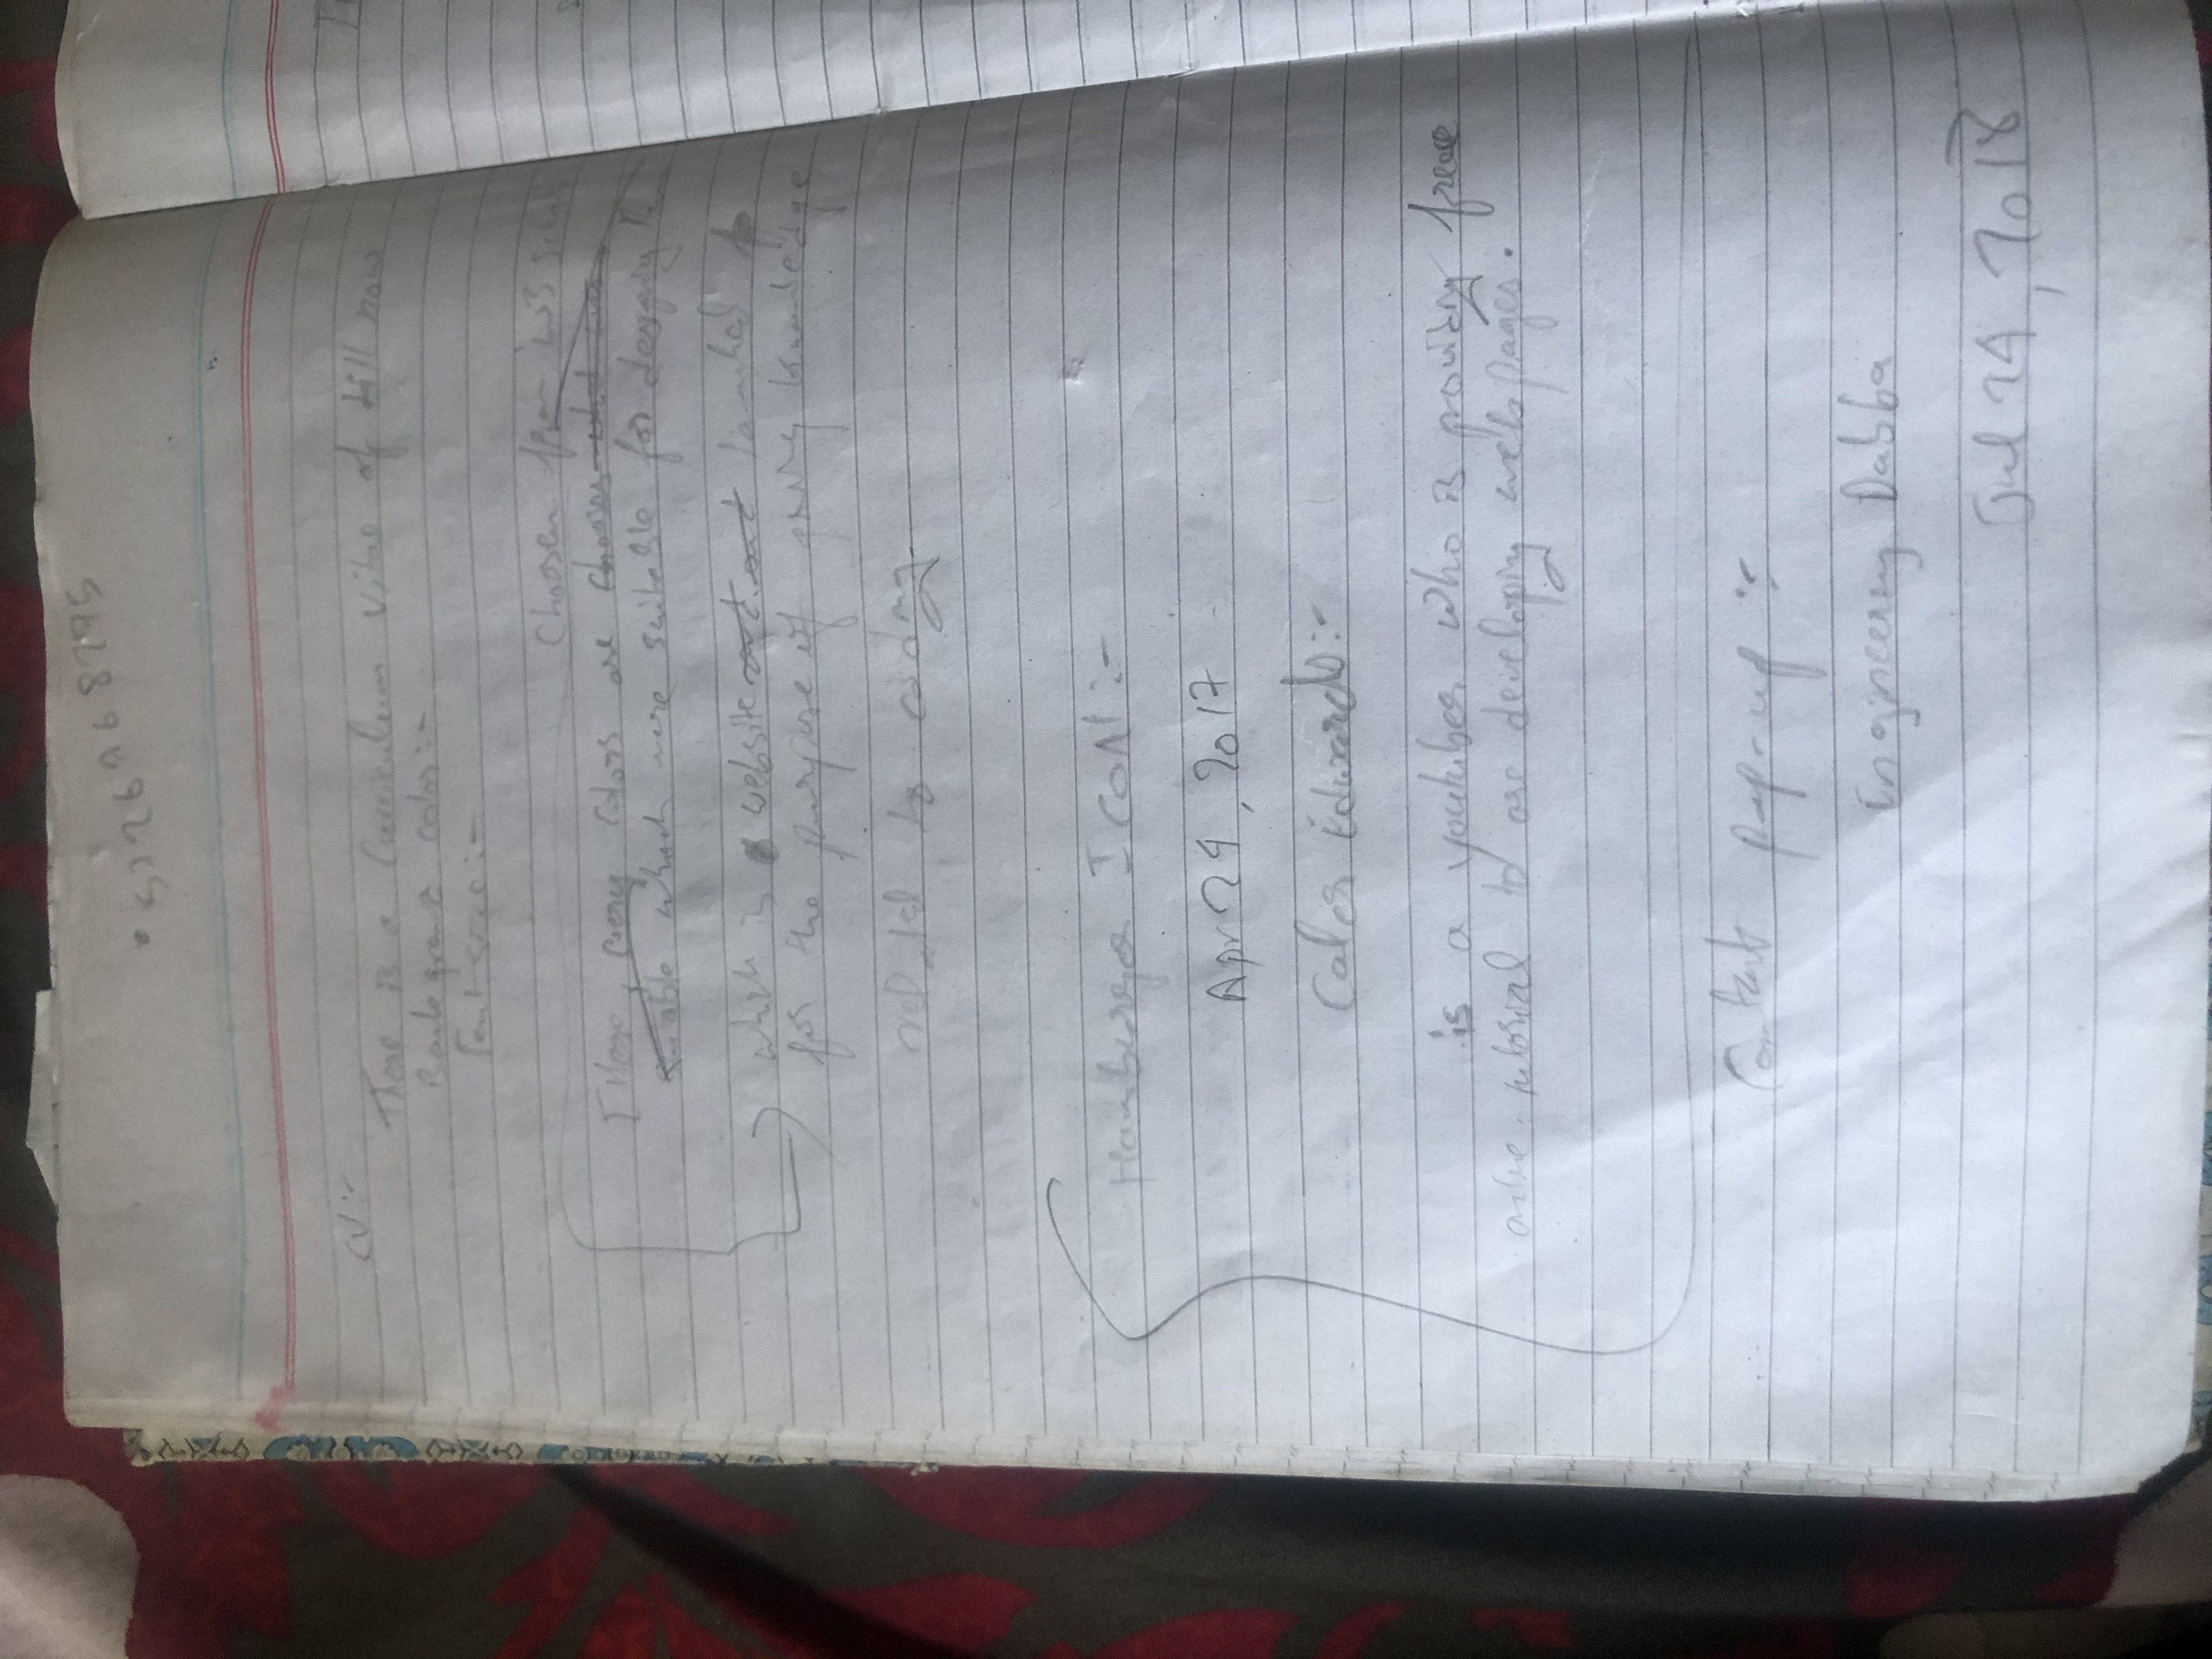 CV :-
There is a Curriculum Vitae of till now
Background color :-
Font size :-
Choosen from w3
[Here, every colors are
which were suitable for desgnig
which is website
for the purpose of giving knowledge
related to coding
Hamburger ICON :-
Apr 24, 2017
Caler Edwards :-
is a youtuber who is providing
tutorial to are developing webpages.
pop-up :-
Engineering Dabba
Jul 24, 2018